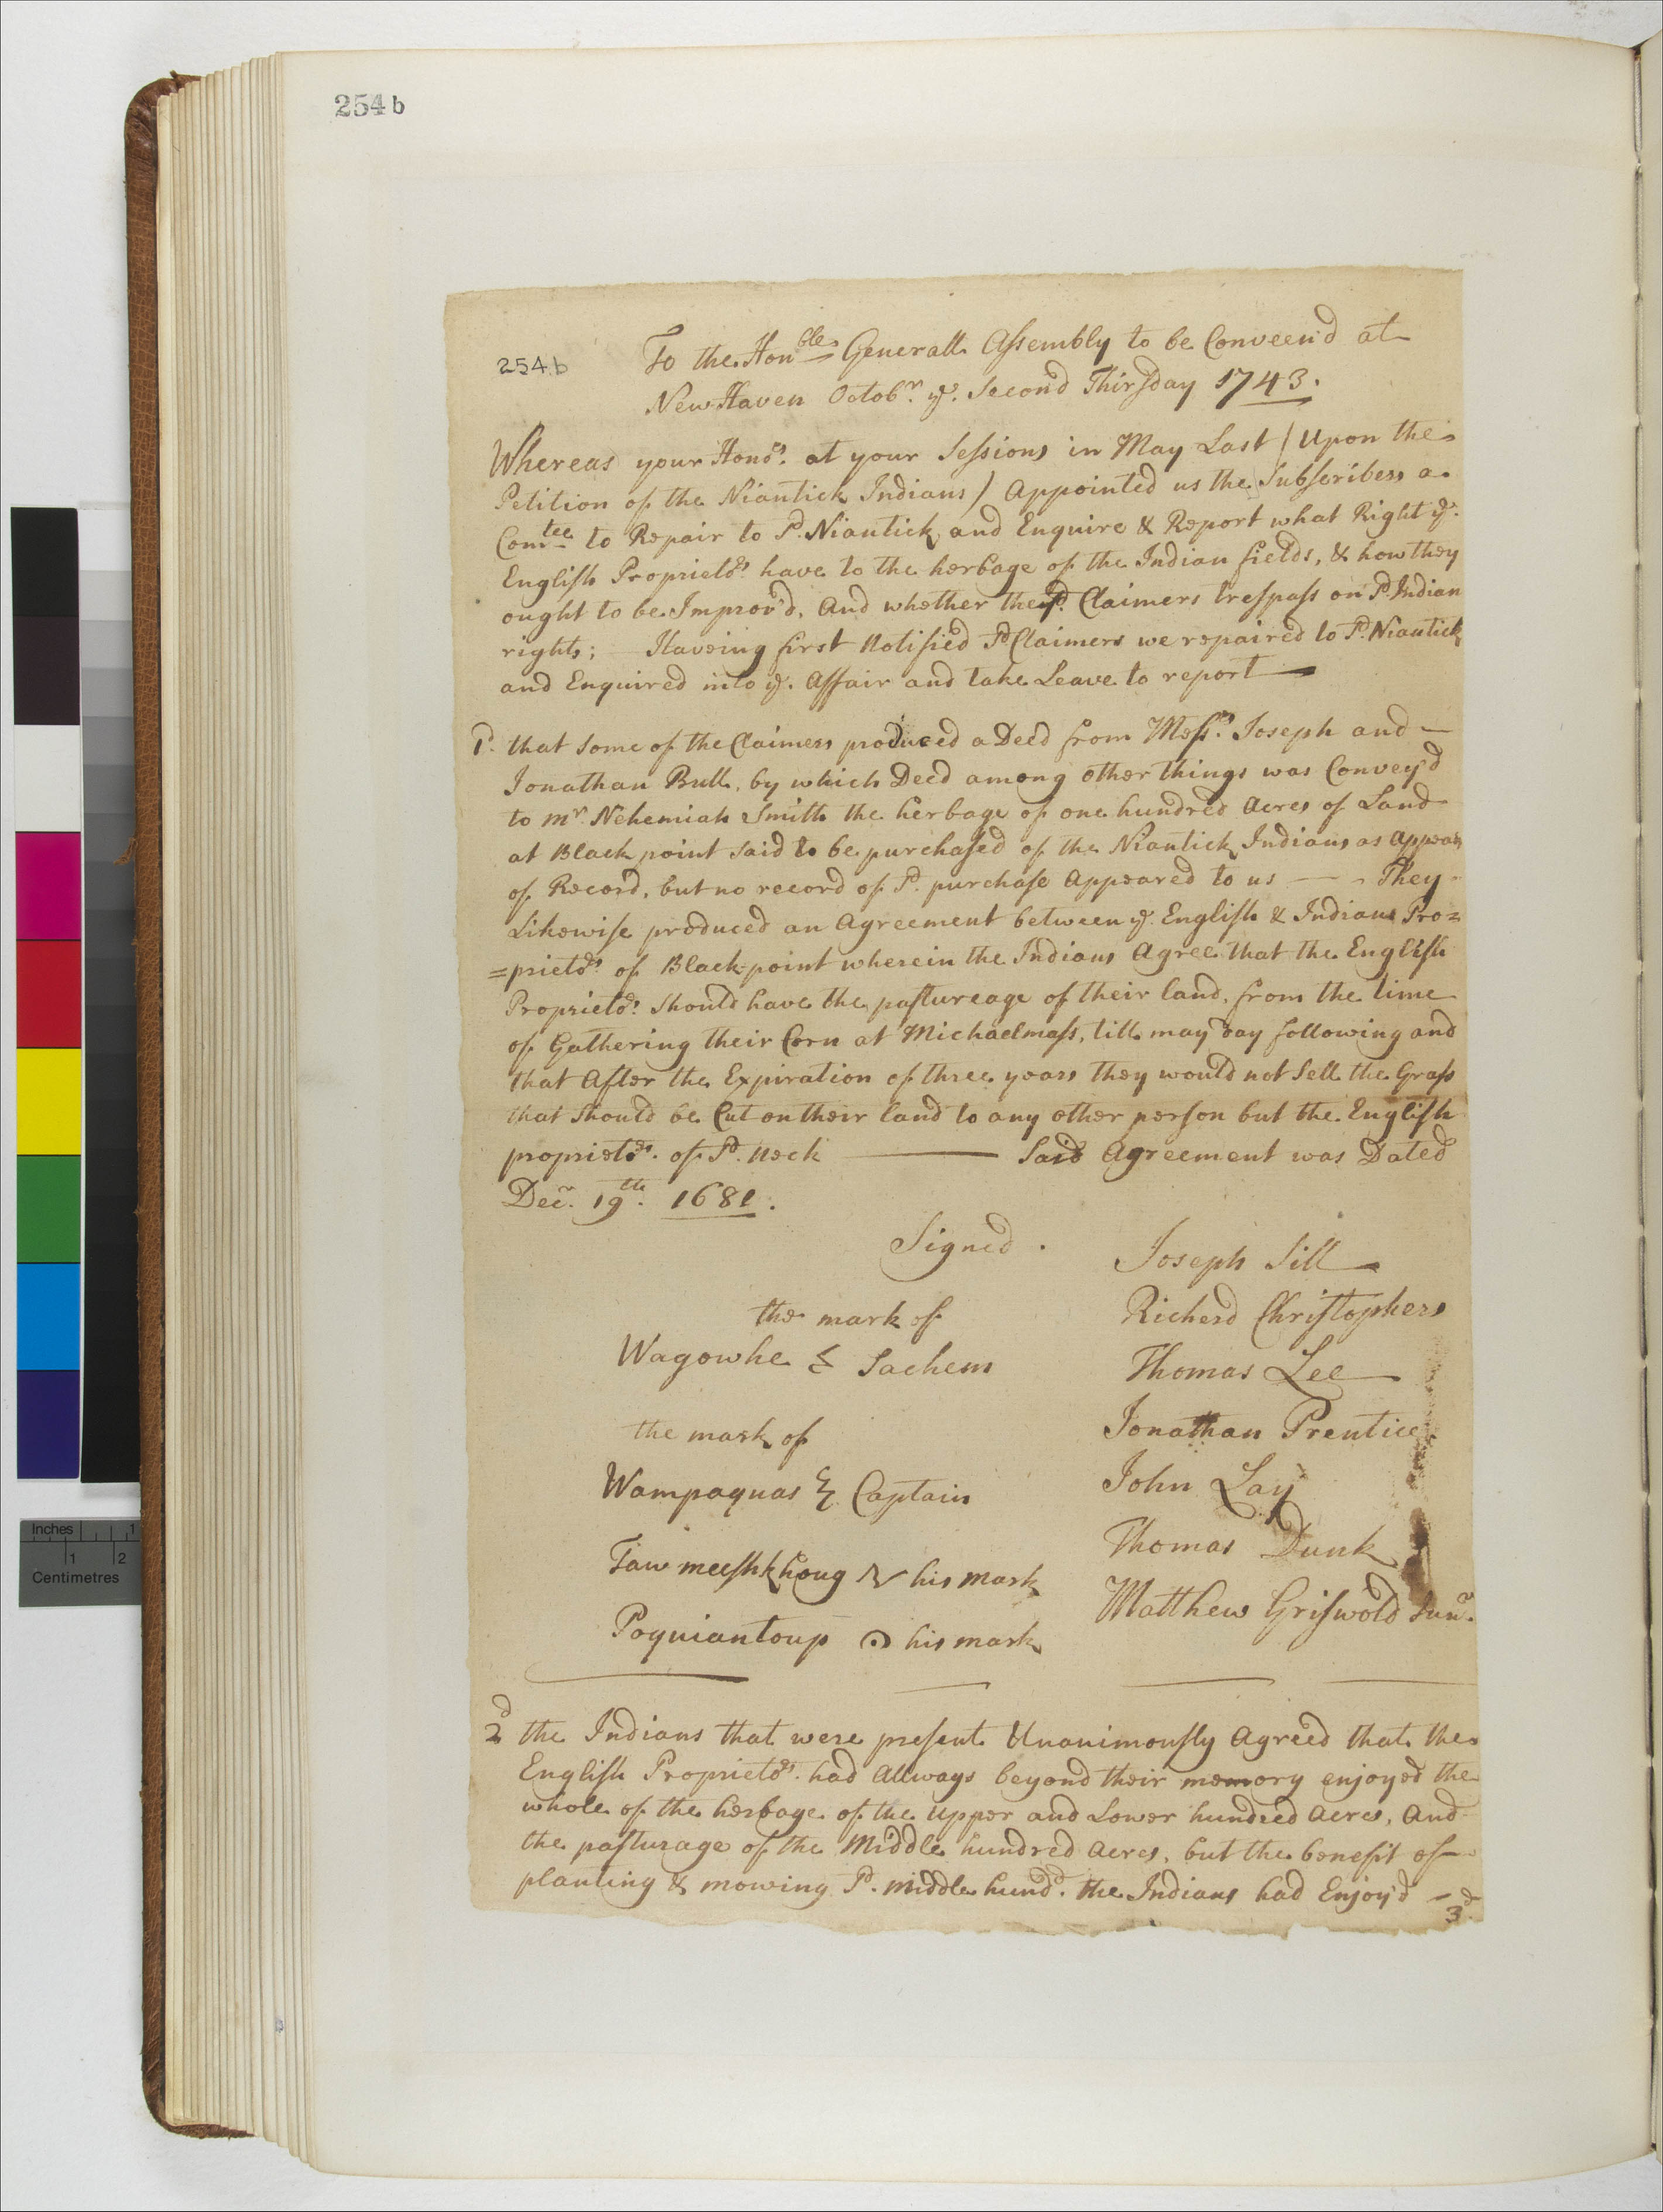 254 b
254.b
To the Hon^ble Generall Assembly to be Conveen'd at
New Haven Octob^r. y^e. Second Thirsday 1743.
Whereas your Hono^rs. at your Sessions in May Last / Upon the
Petition of the Niantick Indians / Appointed us the Subscribers a
Com^tee to Repair to s^d. Niantick and Enquire & Report what Right y^e.
English Propriet^ors. have to the herbage of the Indian fields, & how they
ought to be Improv'd, And whether the s^d. Claimers trespass on s^d. Indian
rights; Haveing first Notified s^d. Claimers we repaired to s^d. Niantick
and Enquired into y^e. Affair and take Leave to report —
1^s. that Some of the Claimers produced a Deed from Mess^rs. Joseph and —
Jonathan Bull, by which Deed among other things was Convey'd
to m^r. Nehemiah Smith the herbage of one hundred Acres of Land
at Black point said to be purchased of the Niantick Indians as Appears
of Record, but no record of s^d. purchase Appeared to us — - They
Likewise produced an Agreement between y^e. English & Indians Pro=
=priet^ors. of Black-point wherein the Indians Agree that the English
Propriet^ors. should have the pastureage of their land, from the time
of Gathering their Corn at Michaelmass, till may day following and
that After the Expiration of three years they would not Sell the Grass
that should be Cut on their land to any other person but the English
propriet^ors. of s^d. Neck — Said Agreement was Dated
Dec^r. 19^th. 1681.
Signed.
Joseph Sill
the mark of
Richerd Christophers
Wagowhe Sachem
Thomas Lee
the mark of
Jonathan Prentice
Wampaquas Captain
John Lay
Thomas Dunk
Tawmeeshkhoug his mark
Matthew Griswold Jun^r.
Poquiantoup his mark
2^d the Indians that were present Unanimously Agreed that the
English Propriet^ors. had Allways beyond their memory enjoyed the
whole of the herbage of the upper and Lower hundred Acres, And
the pasturage of the Middle hundred Acres, but the benefit of
planting & mowing s^d. middle hund^d. the Indians had Enjoy'd —
3^d.
Inches 1
1 2
Centimetres